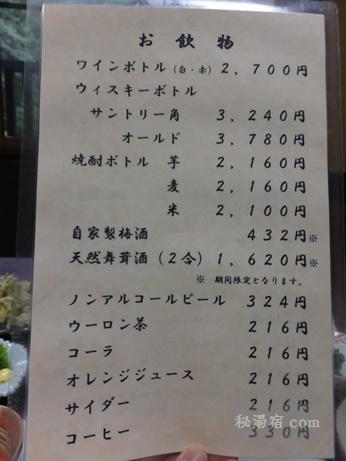 お飲物
ワインボトル（白・赤）２，７００円
ウィスキーボトル
サントリー角　３，２４０円
オールド　３，７８０円
焼酎ボトル　芋　２，１６０円
麦　２，１６０円
米　２，１００円
自家製梅酒　４３２円※
天然舞茸酒（２合）１，６２０円※
※　期間限定となります。
ノンアルコールビール　３２４円
ウーロン茶　２１６円
コーラ　２１６円
オレンジジュース　２１６円
サイダー　２１６円
コーヒー　３３０円
秘湯宿.com